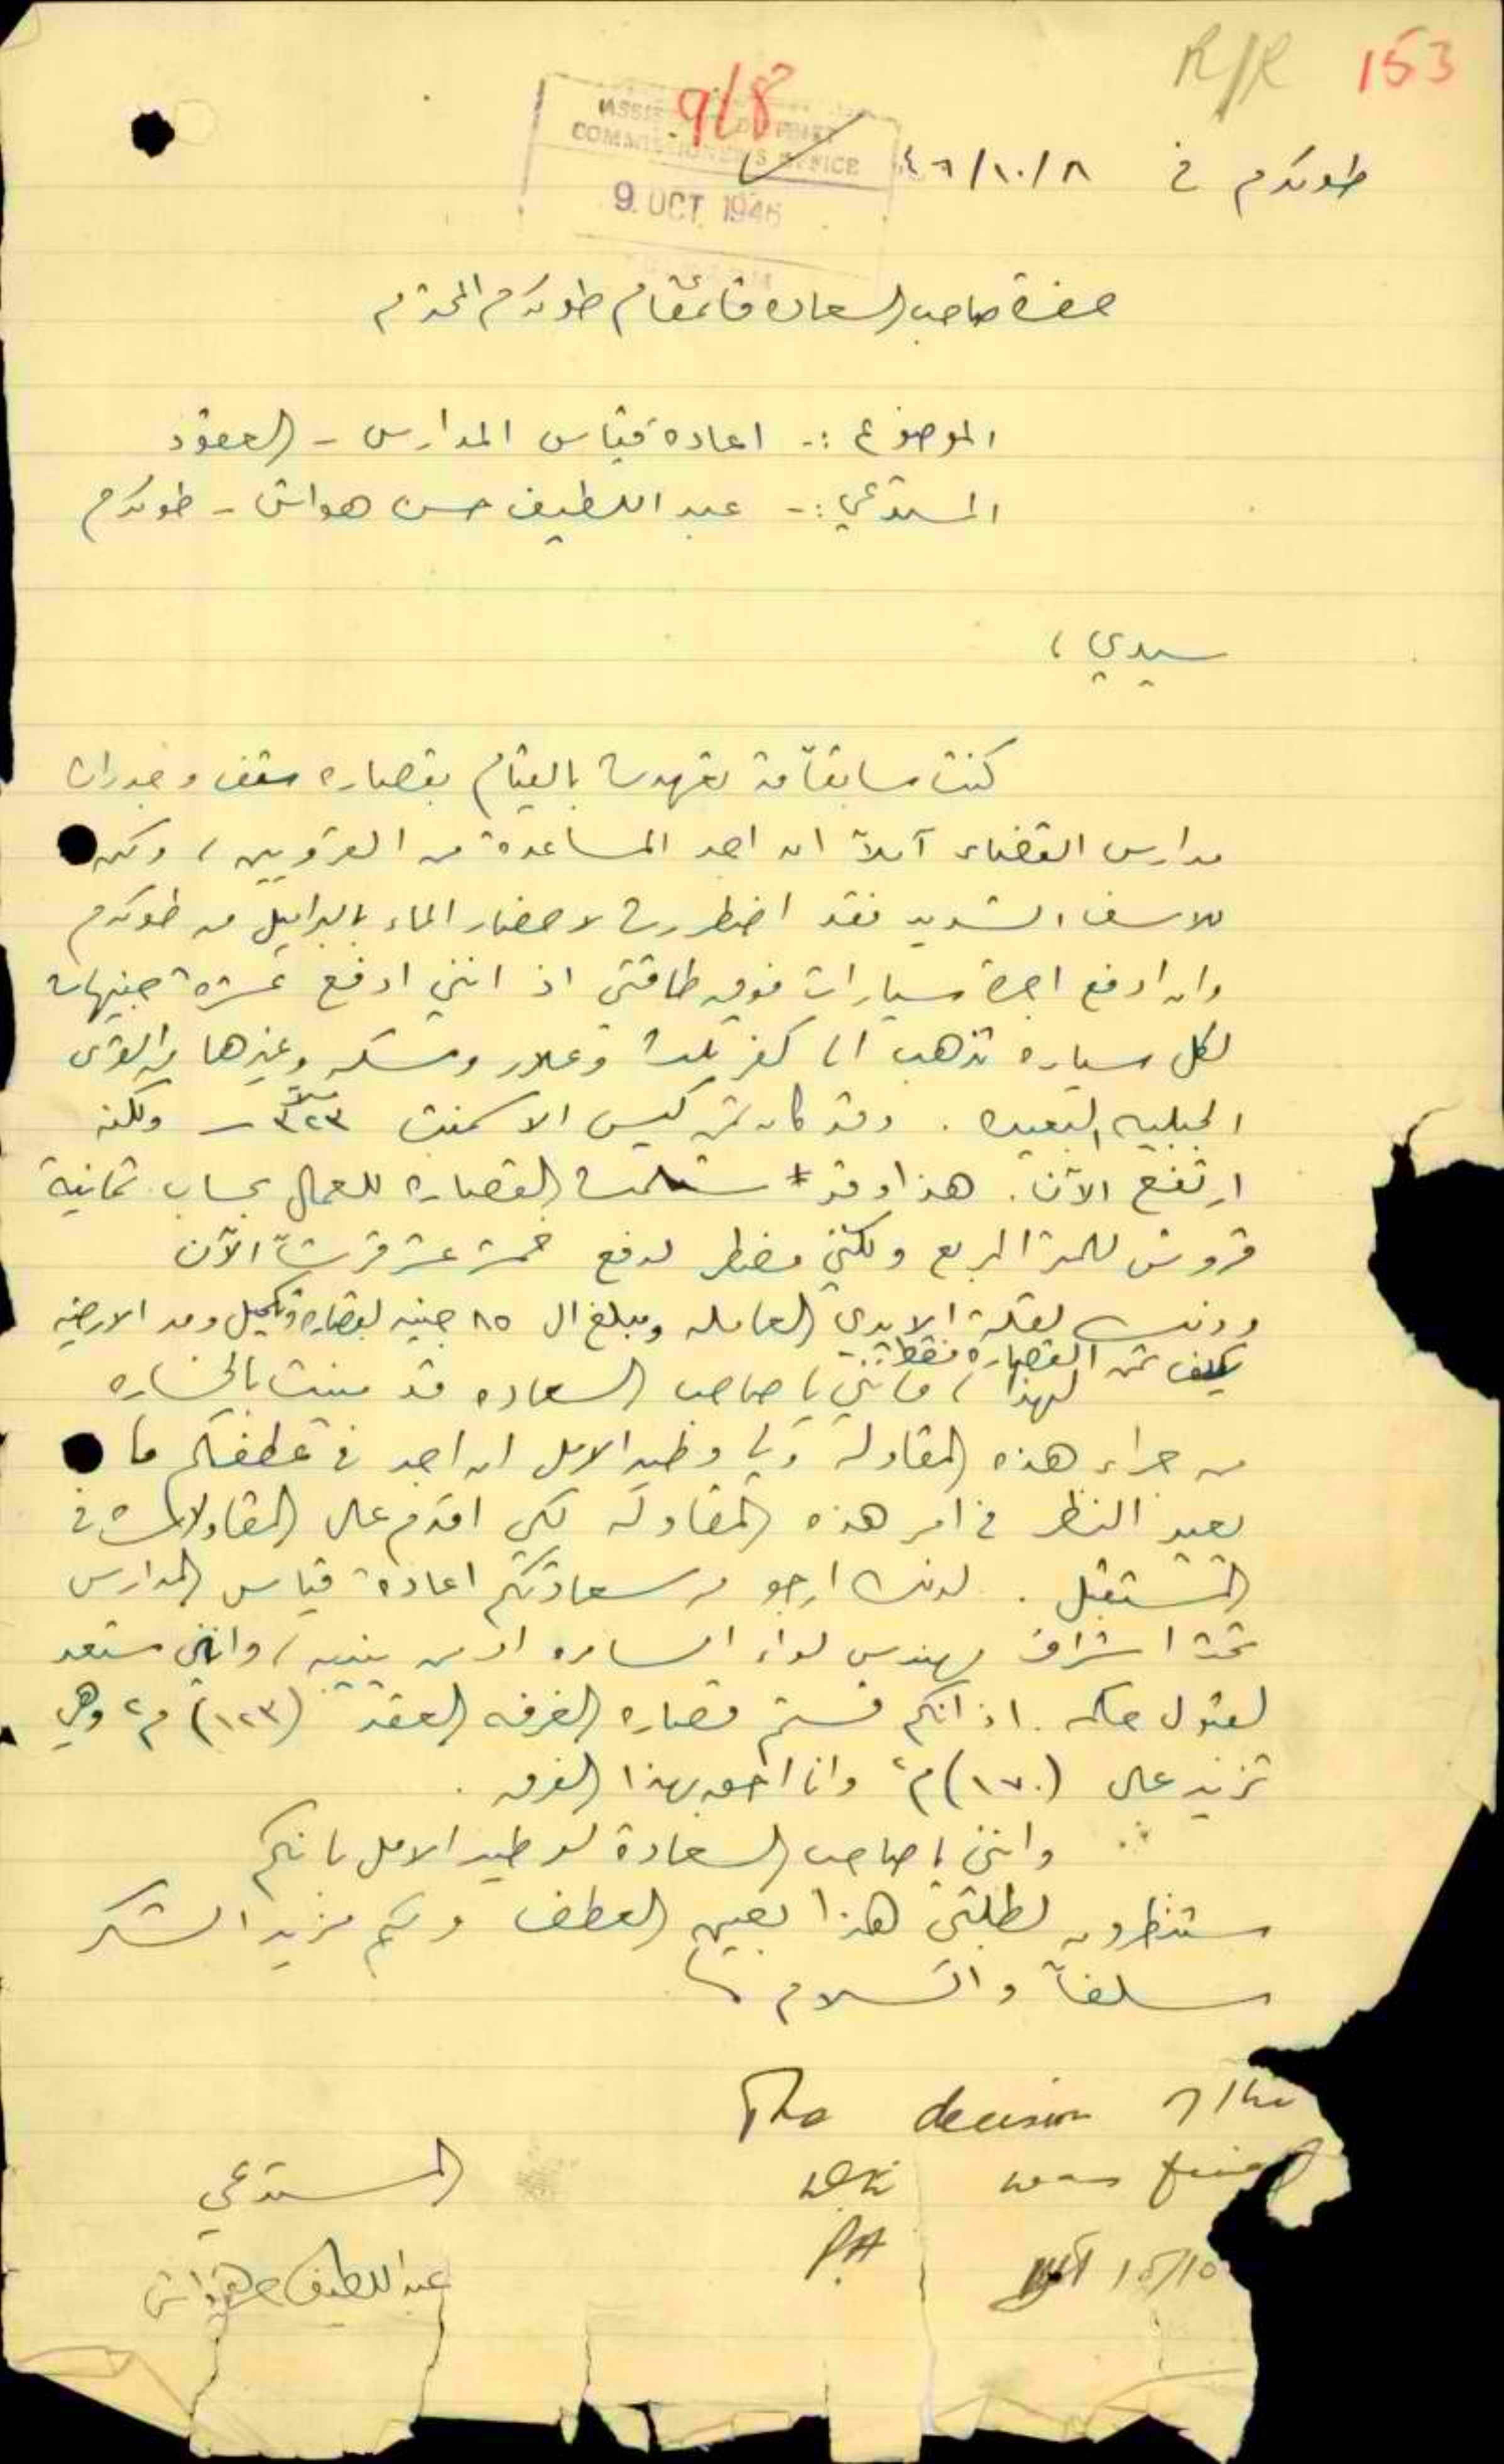 R/R 153
9/8
ASSISTANT DISTRICT
COMMISSIONER'S OFFICE
9 OCT 1946
طولكرم في ٤٦/١٠/٨
حضرة صاحب السعاده قائمقام طولكرم المحترم
الموضوع :- اعادة قياس المدارس - العقود
المستدعي :- عبد اللطيف حسن هواش - طولكرم
سيدي ،
كنت سابقاً قد تعهدت بالقيام بقصاره سقف وجدران
مدارس القضاء آملاً ان اجد المساعدة من القرويين ، ولكن
للاسف الشديد فقد اضطررت لاحضار الماء بالبراميل من طولكرم
وان ادفع اجرة سيارات فوق طاقتي اذ انني ادفع عشرة جنيهات
لكل سياره تذهب الى كفر ثلث وعلار ومسكه وغيرها من القرى
الجبليه البعيده . وقد كان ثمن كيس الاسمنت ٣٢٣ ملاً ولكنه
ارتفع الآن . هذا وقد سلمت القصاره للعمال بحساب ثمانية
قروش للمتر المربع ولكني مضطر لدفع خمسة عشر قرشاً الآن
وذلك لقلة الايدي العامله ومبلغ ال ٨٥ جنيه لقصاره وتكحيل ومد الارضيه
يكلف ثمن القصاره فقط
لهذا ، فانني يا صاحب السعاده قد منيت بالخساره
من جراء هذه المقاولة ولي وطيد الامل ان اجد في عطفكم ما
يعيد النظر في امر هذه المقاولة لكي اقدم على المقاولات في
المستقبل . لذلك ارجو من سعادتكم اعادة قياس المدارس
تحت اشراف مهندس لواء السامره او من ينيبه ، وانني مستعد
لقبول حكمه . اذ انكم قستم قصاره الغرفه العقد (١٢٣) م٢ وهي
تزيد على (١٧٠) م٢ وانا احق بهذا الفرق .
وانني يا صاحب السعادة لوطيد الامل بانكم
ستنظرون لطلبي هذا بعين العطف ولكم مزيد الشكر
سلفاً والسلام
The decision of the
was final
15/10
المستدعي
عبد اللطيف حسن هواش